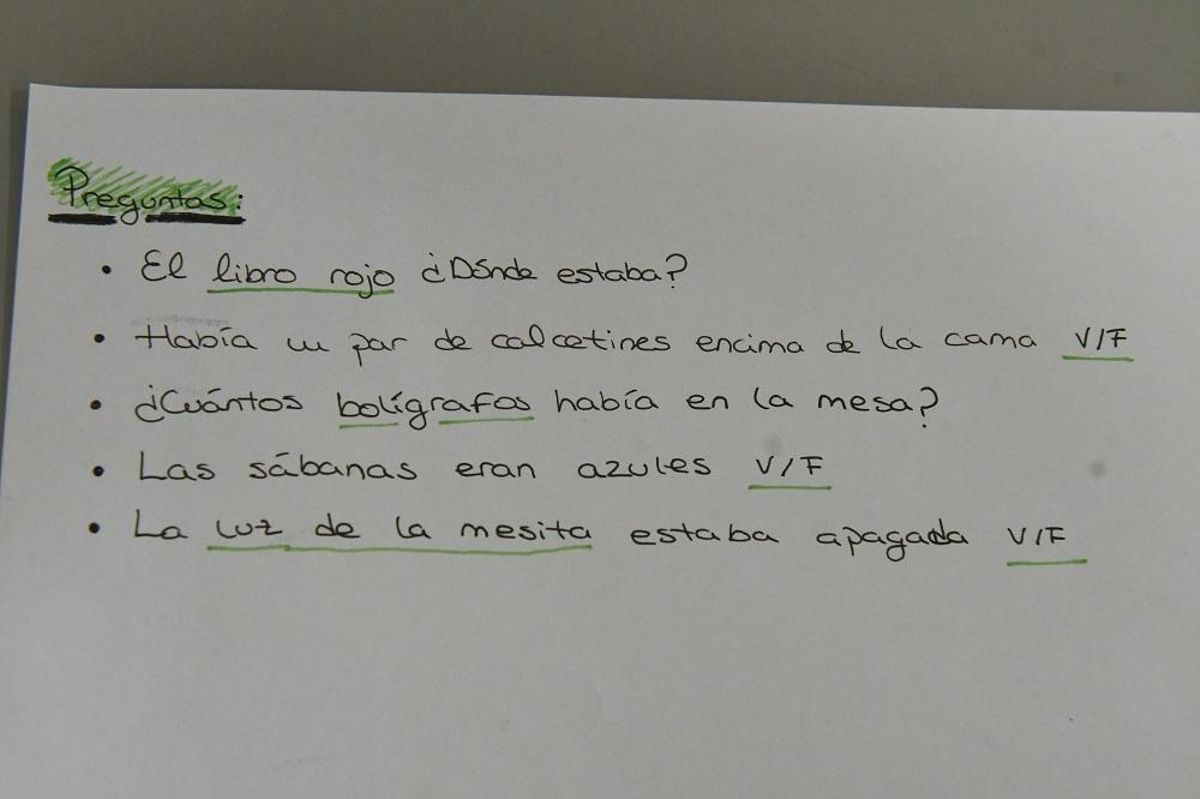 Preguntas:
• El libro rojo ¿Dónde estaba?
• Había un par de calcetines encima de la cama V/F
• ¿Cuántos bolígrafos había en la mesa?
• Las sábanas eran azules V/F
• La luz de la mesita estaba apagada V/F